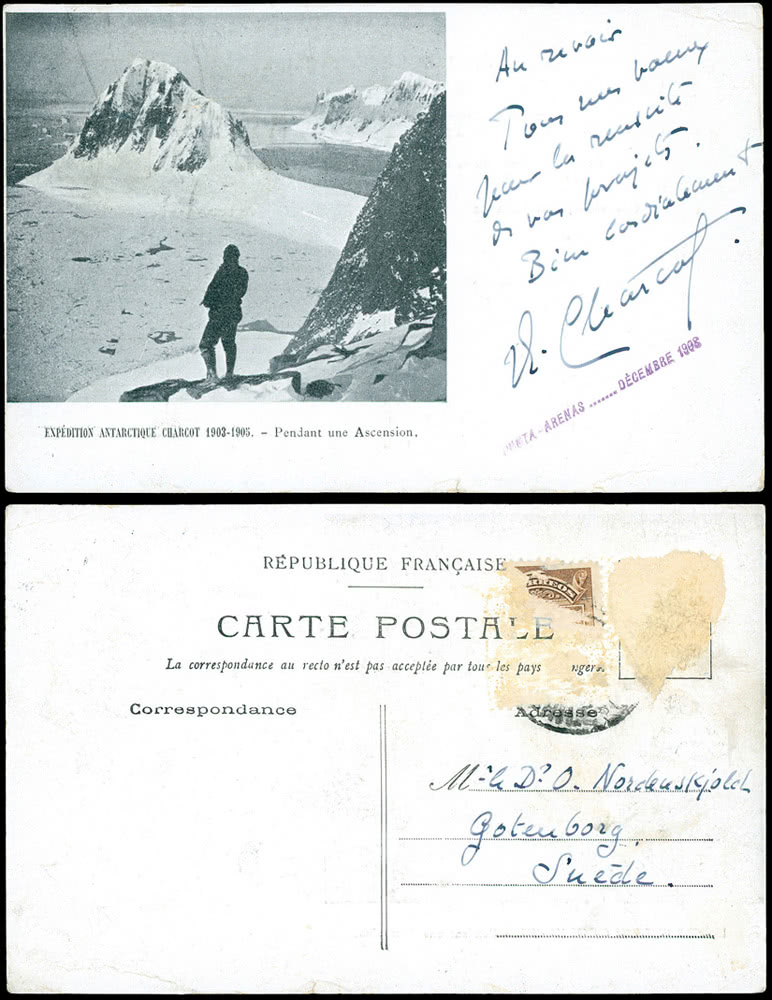 Au revoir
Tous mes vœux
pour la réussite
de vos projets.
Bien cordialement
Charcot
PUNTA-ARENAS ....... DÉCEMBRE 1908
EXPÉDITION ANTARCTIQUE CHARCOT 1903-1905. – Pendant une Ascension.
RÉPUBLIQUE FRANÇAISE
CARTE POSTALE
La correspondance au recto n'est pas acceptée par tous les pays
Correspondance
Adresse
Mr le Dr O. Nordenskjold
Gotenborg
Suède.